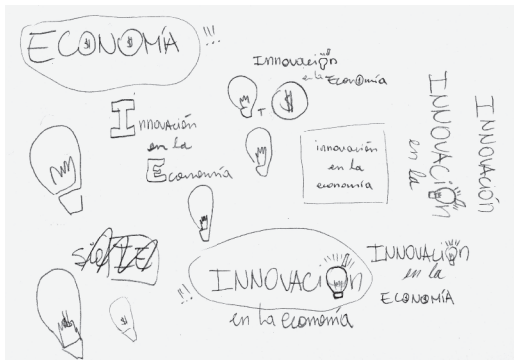 ECONOMÍA !!!
Innovación
en la Economía
$
Innovación
en la
Economía
innovación
en la
economía
INNOVACIÓN
en la
INNOVACIÓN
$
INNOVACIÓN
en la economía
!!!
INNOVACIÓN
en la
ECONOMÍA